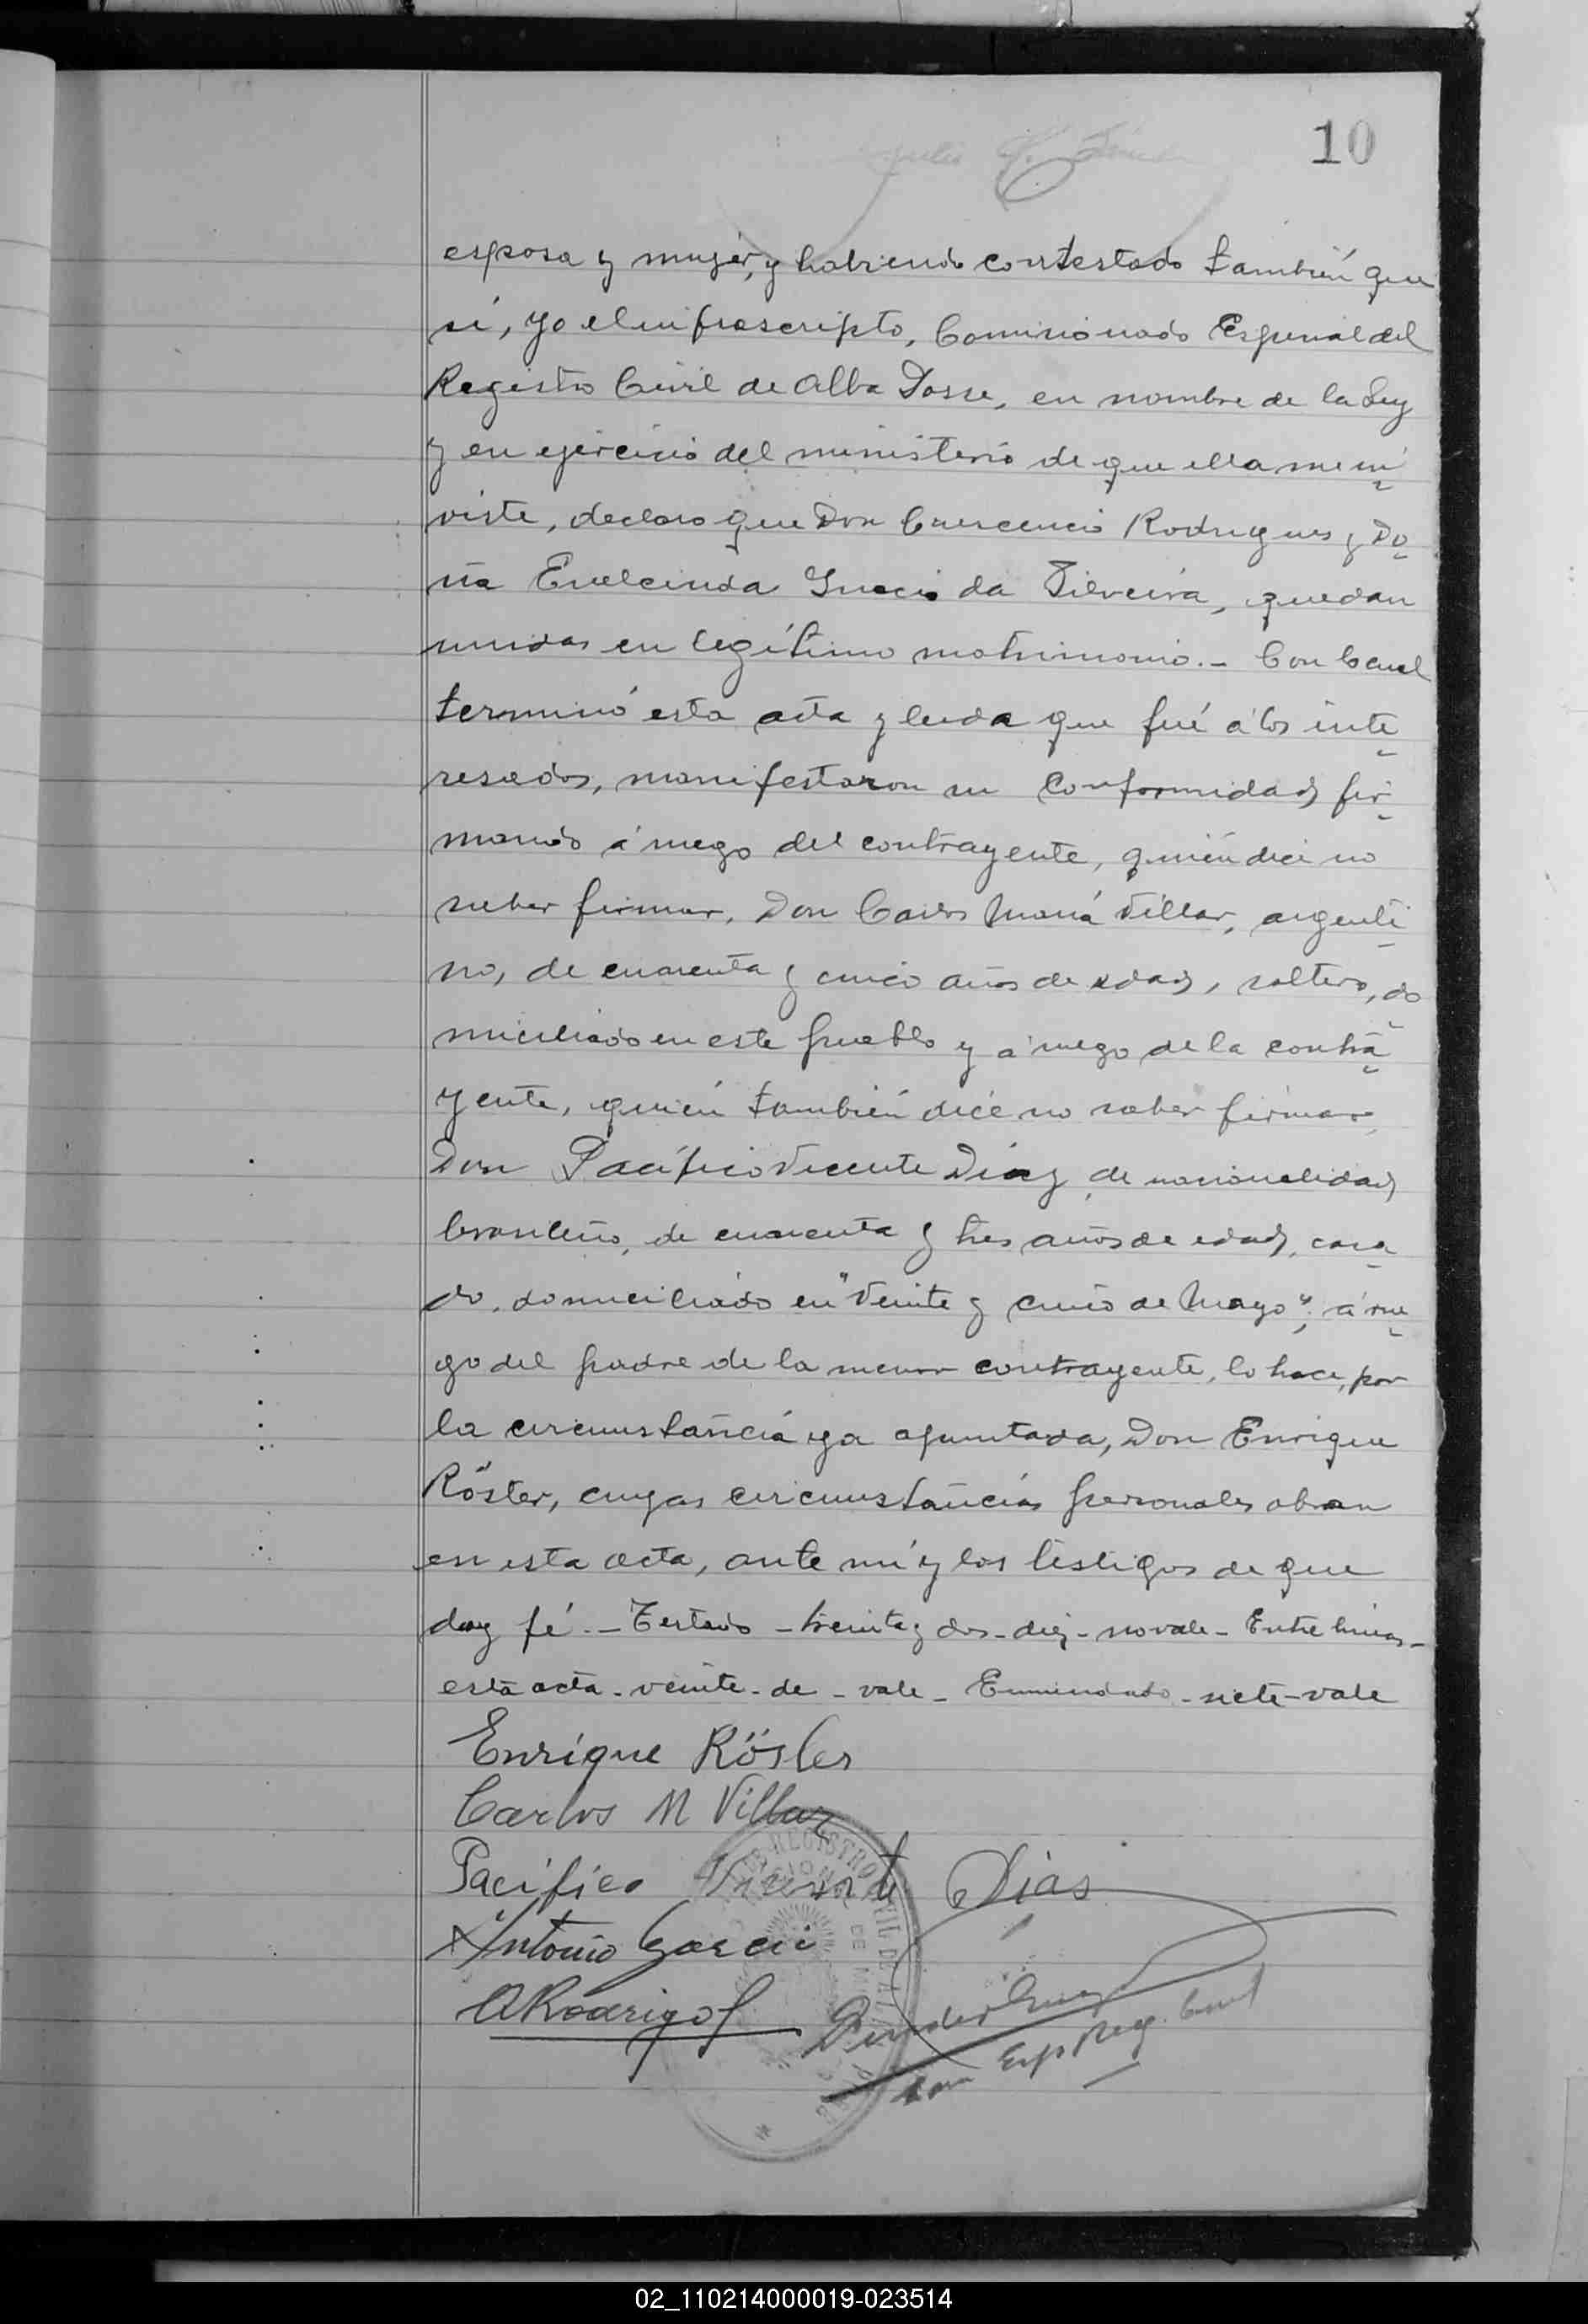 10
esposa y mujer, y habiendo contestado también que
sí, yo el infrascripto, Comisionado Especial del
Registro Civil de Alba Posse, en nombre de la Ley
y en ejercicio del ministerio de que ella me in
viste, declaro que Don Crescencio Rodrigues y Do
ña Euclcinda Ignacio da Silveira, quedan
unidos en legítimo matrimonio.- Con lo cual
terminó esta acta y leida que fué á los inte
resados, manifestaron su conformidad, fir
mando á ruego del contrayente, quién dice no
saber firmar, Don Carlos María Villar, argenti
no, de cuarenta y cinco años de edad, soltero, do
miciliado en este pueblo y á ruego de la contra
yente, quién también dice no saber firmar,
Don Pacífico Vicente Díaz, de nacionalidad
brasileño, de cuarenta y tres años de edad, casa
do, domiciliado en "Veinte y cinco de Mayo"; á rue
go del padre de la menor contrayente, lo hace, por
la circunstancia ya apuntada, Don Enrique
Röster, cuyas circunstancias personales obran
en esta acta, ante mí y los testigos de que
doy fé.- Testado - treinta y dos - diez - no vale - Entre lineas -
esta acta - veinte - de - vale - Enmendado - siete - vale
Enrique Rösler
Carlos M Villar
Pacifico Vicente Dias
Antonio Garcia
A Rodrigo
Com Esp Reg. Civil
REGISTRO CIVIL DE
02_110214000019-023514